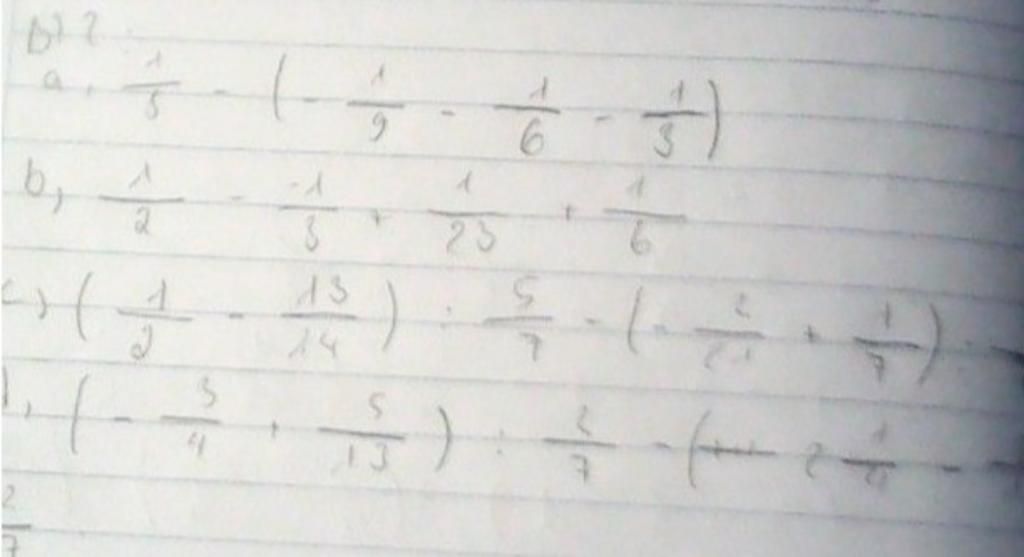 a, 1/5 - (- 1/9 - 1/6 - 1/3)
b, 1/2 - -1/3 + 1/23 + 1/6
c, (1/2 - 13/14) : 5/7 - (- 2/21 + 1/7) :
(- 3/4 + 5/13) : 2/7 - ( 2 1/4 -
2/7